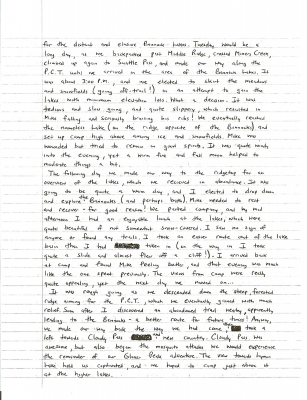 for the distant and elusive Bannock Lakes. Tuesday would be a
long day, as we backpacked past Middle Ridge, crossed Miners Creek,
climbed up again to Suiattle Pass, and made our way along the
P.C.T. until we arrived in the area of the Bannock Lakes. It
was about 3:00 P.M., and we elected to skirt the meadows
and snowfields (going off-trail!) in an attempt to gain the
lakes with minimum elevation loss. What a decision. It was
tedious and slow going, and quite slippery, which resulted in
Mike falling and seriously bruising his ribs! We eventually reached
the nameless Lake (on the ridge opposite of the Bannocks) and
set up Camp high above among ice and snowfields. Mike was
wounded but tried to remain in good spirits. It was quite windy
into the evening, yet a warm fire and full moon helped to
moderate things a bit.
The following day we made our way to the ridgetop for an
overview of the lakes, which we received in abundance. It was
going to be quite a warm day and I elected to drop down
and explore the Bannocks (and perhaps bathe). Mike needed to rest
and recover - for good reason! We parted company, and by mid
afternoon I had an enjoyable lunch at the lakes, which were
quite beautiful if not somewhat snow-covered. I saw no sign of
anyone or found any trails. I took an easier route out of the lake
basin than I had taken in (on the way in I took
quite a slide and almost flew off a cliff!). I arrived back
at camp and found Mike feeling better and that evening was much
like the one spent previously. The views from camp were really
quite appealing, yet the next day we moved on...
It was rough going as we descended down the steep, forested
ridge aiming for the P.C.T., which we eventually gained with much
relief. Soon after I discovered an abandoned trail nearby, apparently
leading to the Bannocks - a better route for future times! Anyway,
we made our way back the way we had come, take a
left towards Cloudy Pass new country. Cloudy Pass was
awesome but also began the mosquito attacks we would experience
the remainder of our Glacier Peak adventure. The view towards Lyman
Lake held us captivated, and we hoped to camp just above it
at the higher lakes.